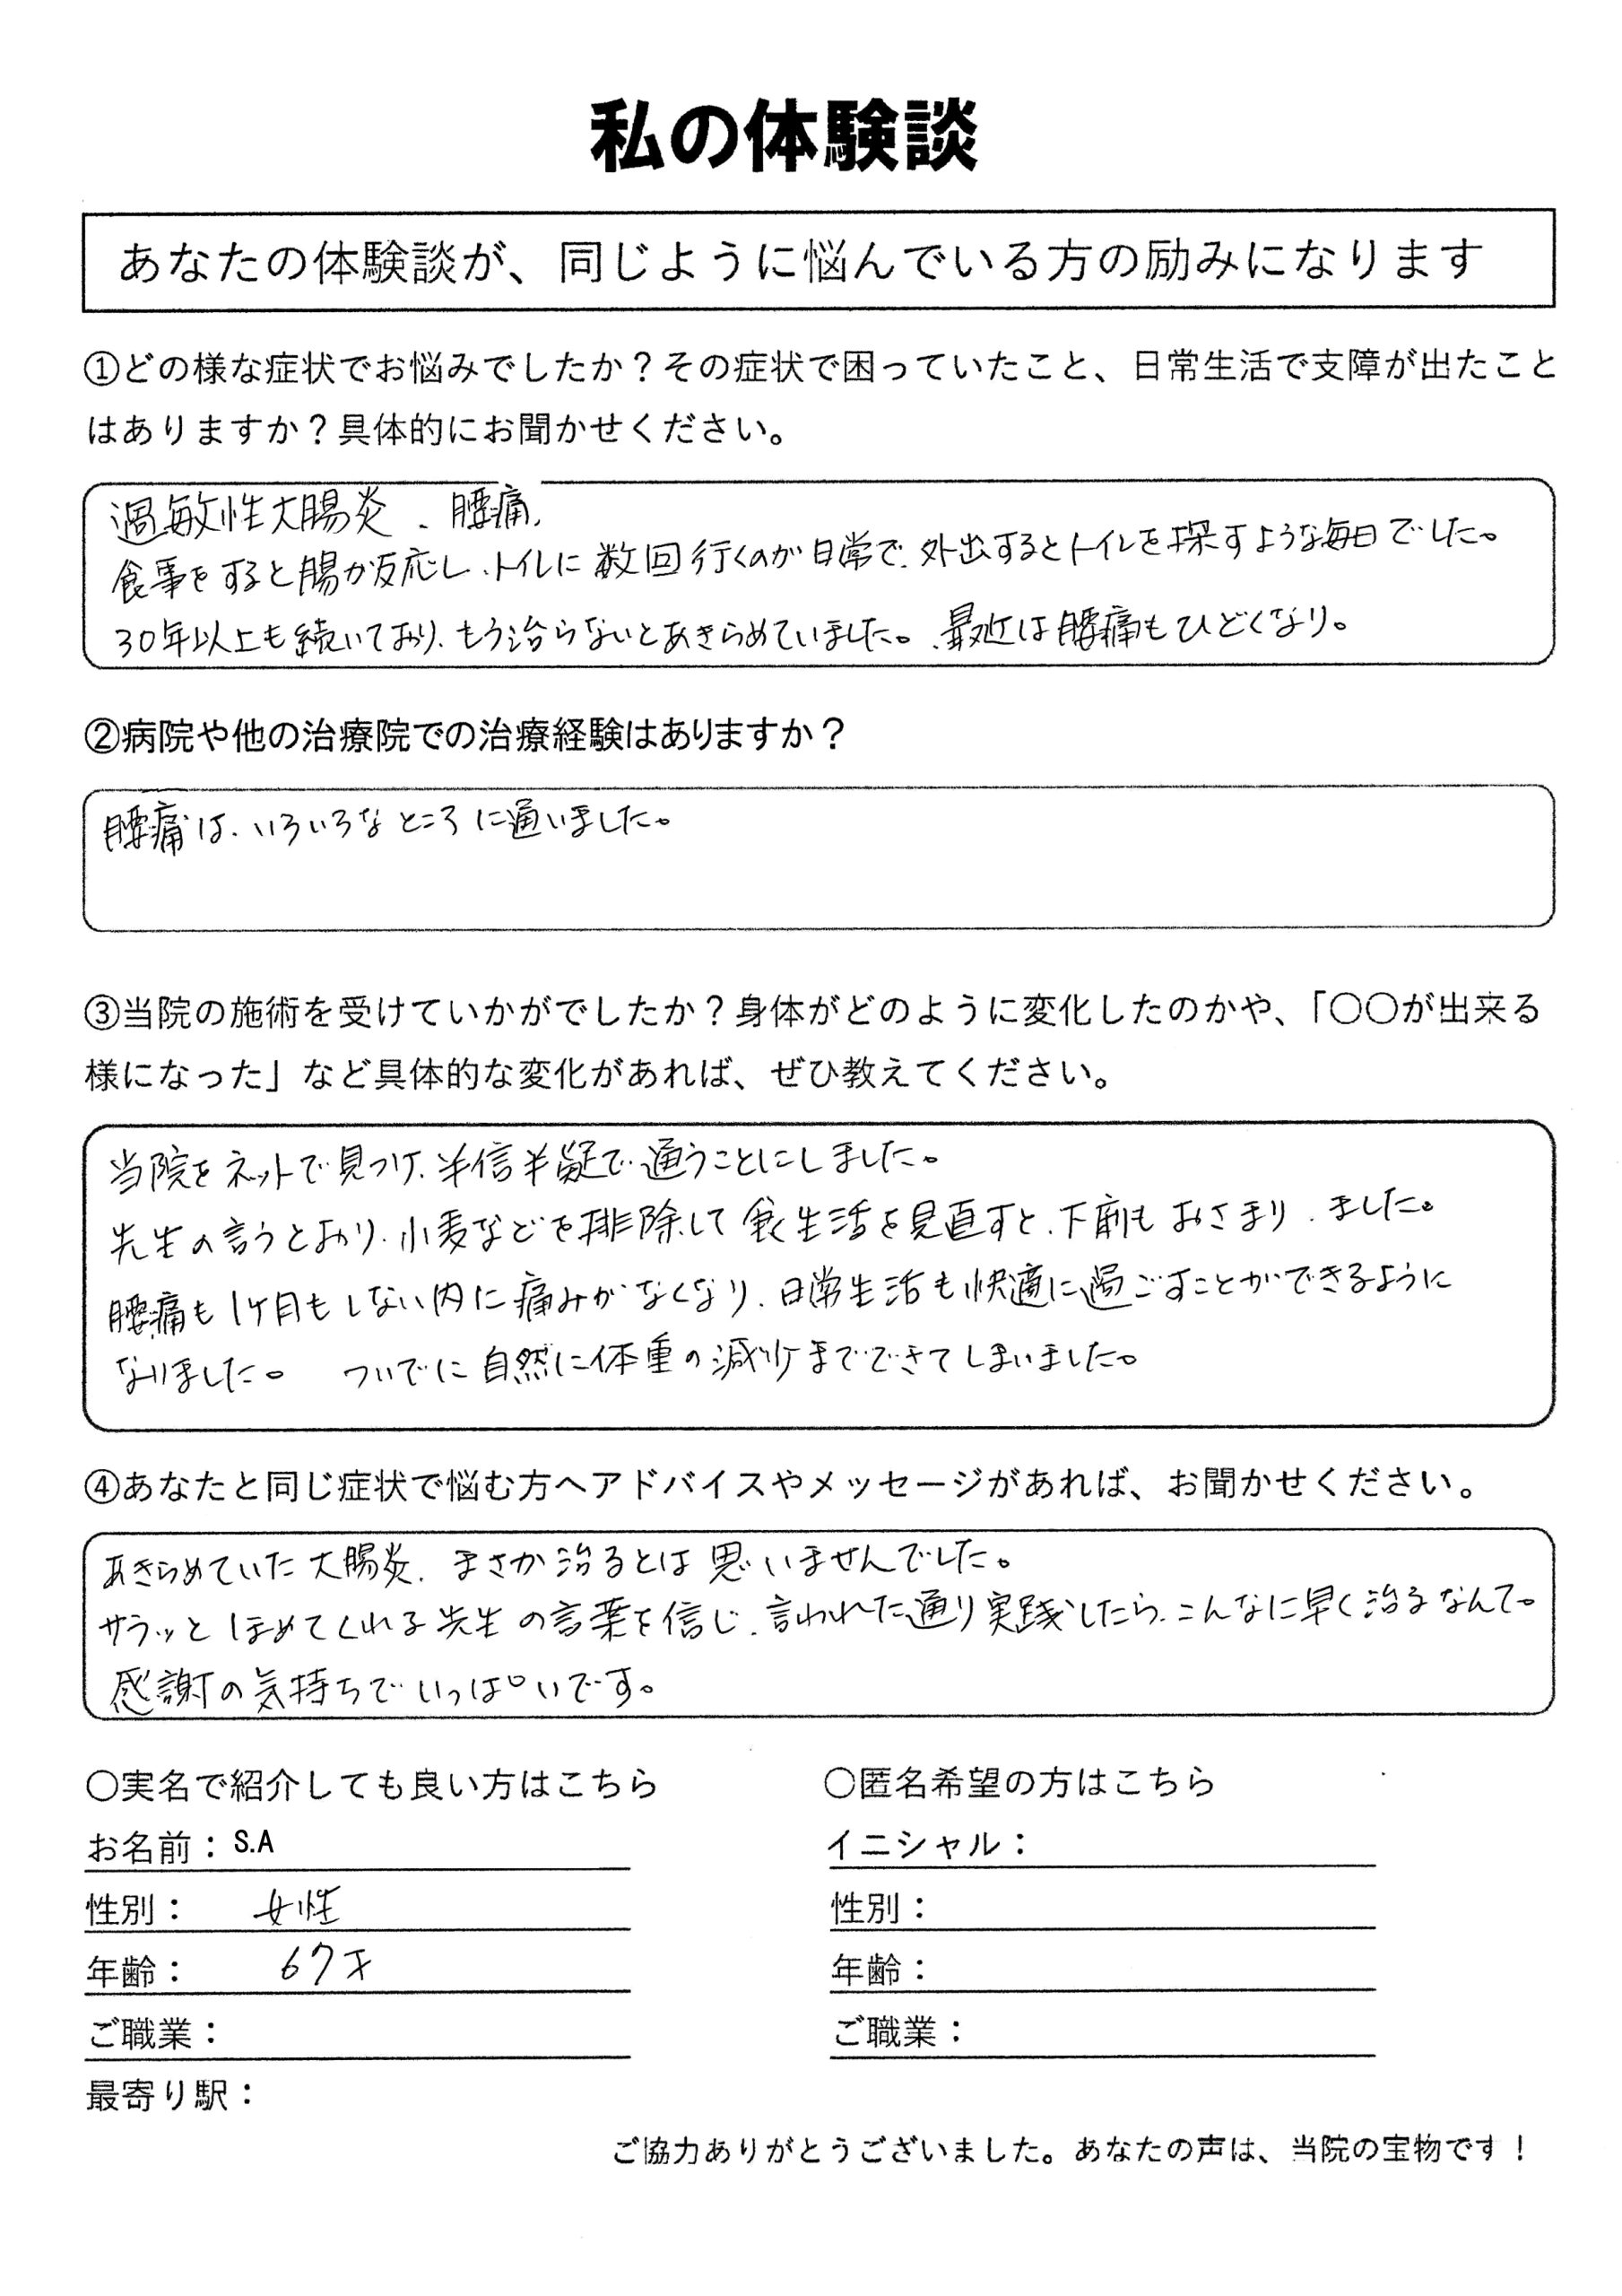 私の体験談
あなたの体験談が、同じように悩んでいる方の励みになります
①どの様な症状でお悩みでしたか？その症状で困っていたこと、日常生活で支障が出たこと
はありますか？具体的にお聞かせください。
過敏性大腸炎、腰痛、
食事をすると腸が反応し、トイレに数回行くのが日常で、外出するとトイレを探すような毎日でした。
30年以上も続いており、もう治らないとあきらめていました。、最近は腰痛もひどくなり。
②病院や他の治療院での治療経験はありますか？
腰痛は、いろいろなところに通いました。
③当院の施術を受けていかがでしたか？身体がどのように変化したのかや、「〇〇が出来る
様になった」など具体的な変化があれば、ぜひ教えてください。
当院をネットで見つけ、半信半疑で通うことにしました。
先生の言うとおり、小麦などを排除して食生活を見直すと、下痢もおさまり、ました。
腰痛も1ヶ月もしない内に痛みがなくなり、日常生活も快適に過ごすことができるように
なりました。　ついでに自然に体重の減少までできてしまいました。
④あなたと同じ症状で悩む方へアドバイスやメッセージがあれば、お聞かせください。
あきらめていた大腸炎、まさか治るとは思いませんでした。
サラッとほめてくれる先生の言葉を信じ、言われた通り実践したら、こんなに早く治るなんて。
感謝の気持ちでいっぱいです。
〇実名で紹介しても良い方はこちら
お名前：S.A
性別：　女性
年齢：　67才
ご職業：
最寄り駅：
〇匿名希望の方はこちら
イニシャル：
性別：
年齢：
ご職業：
ご協力ありがとうございました。あなたの声は、当院の宝物です！